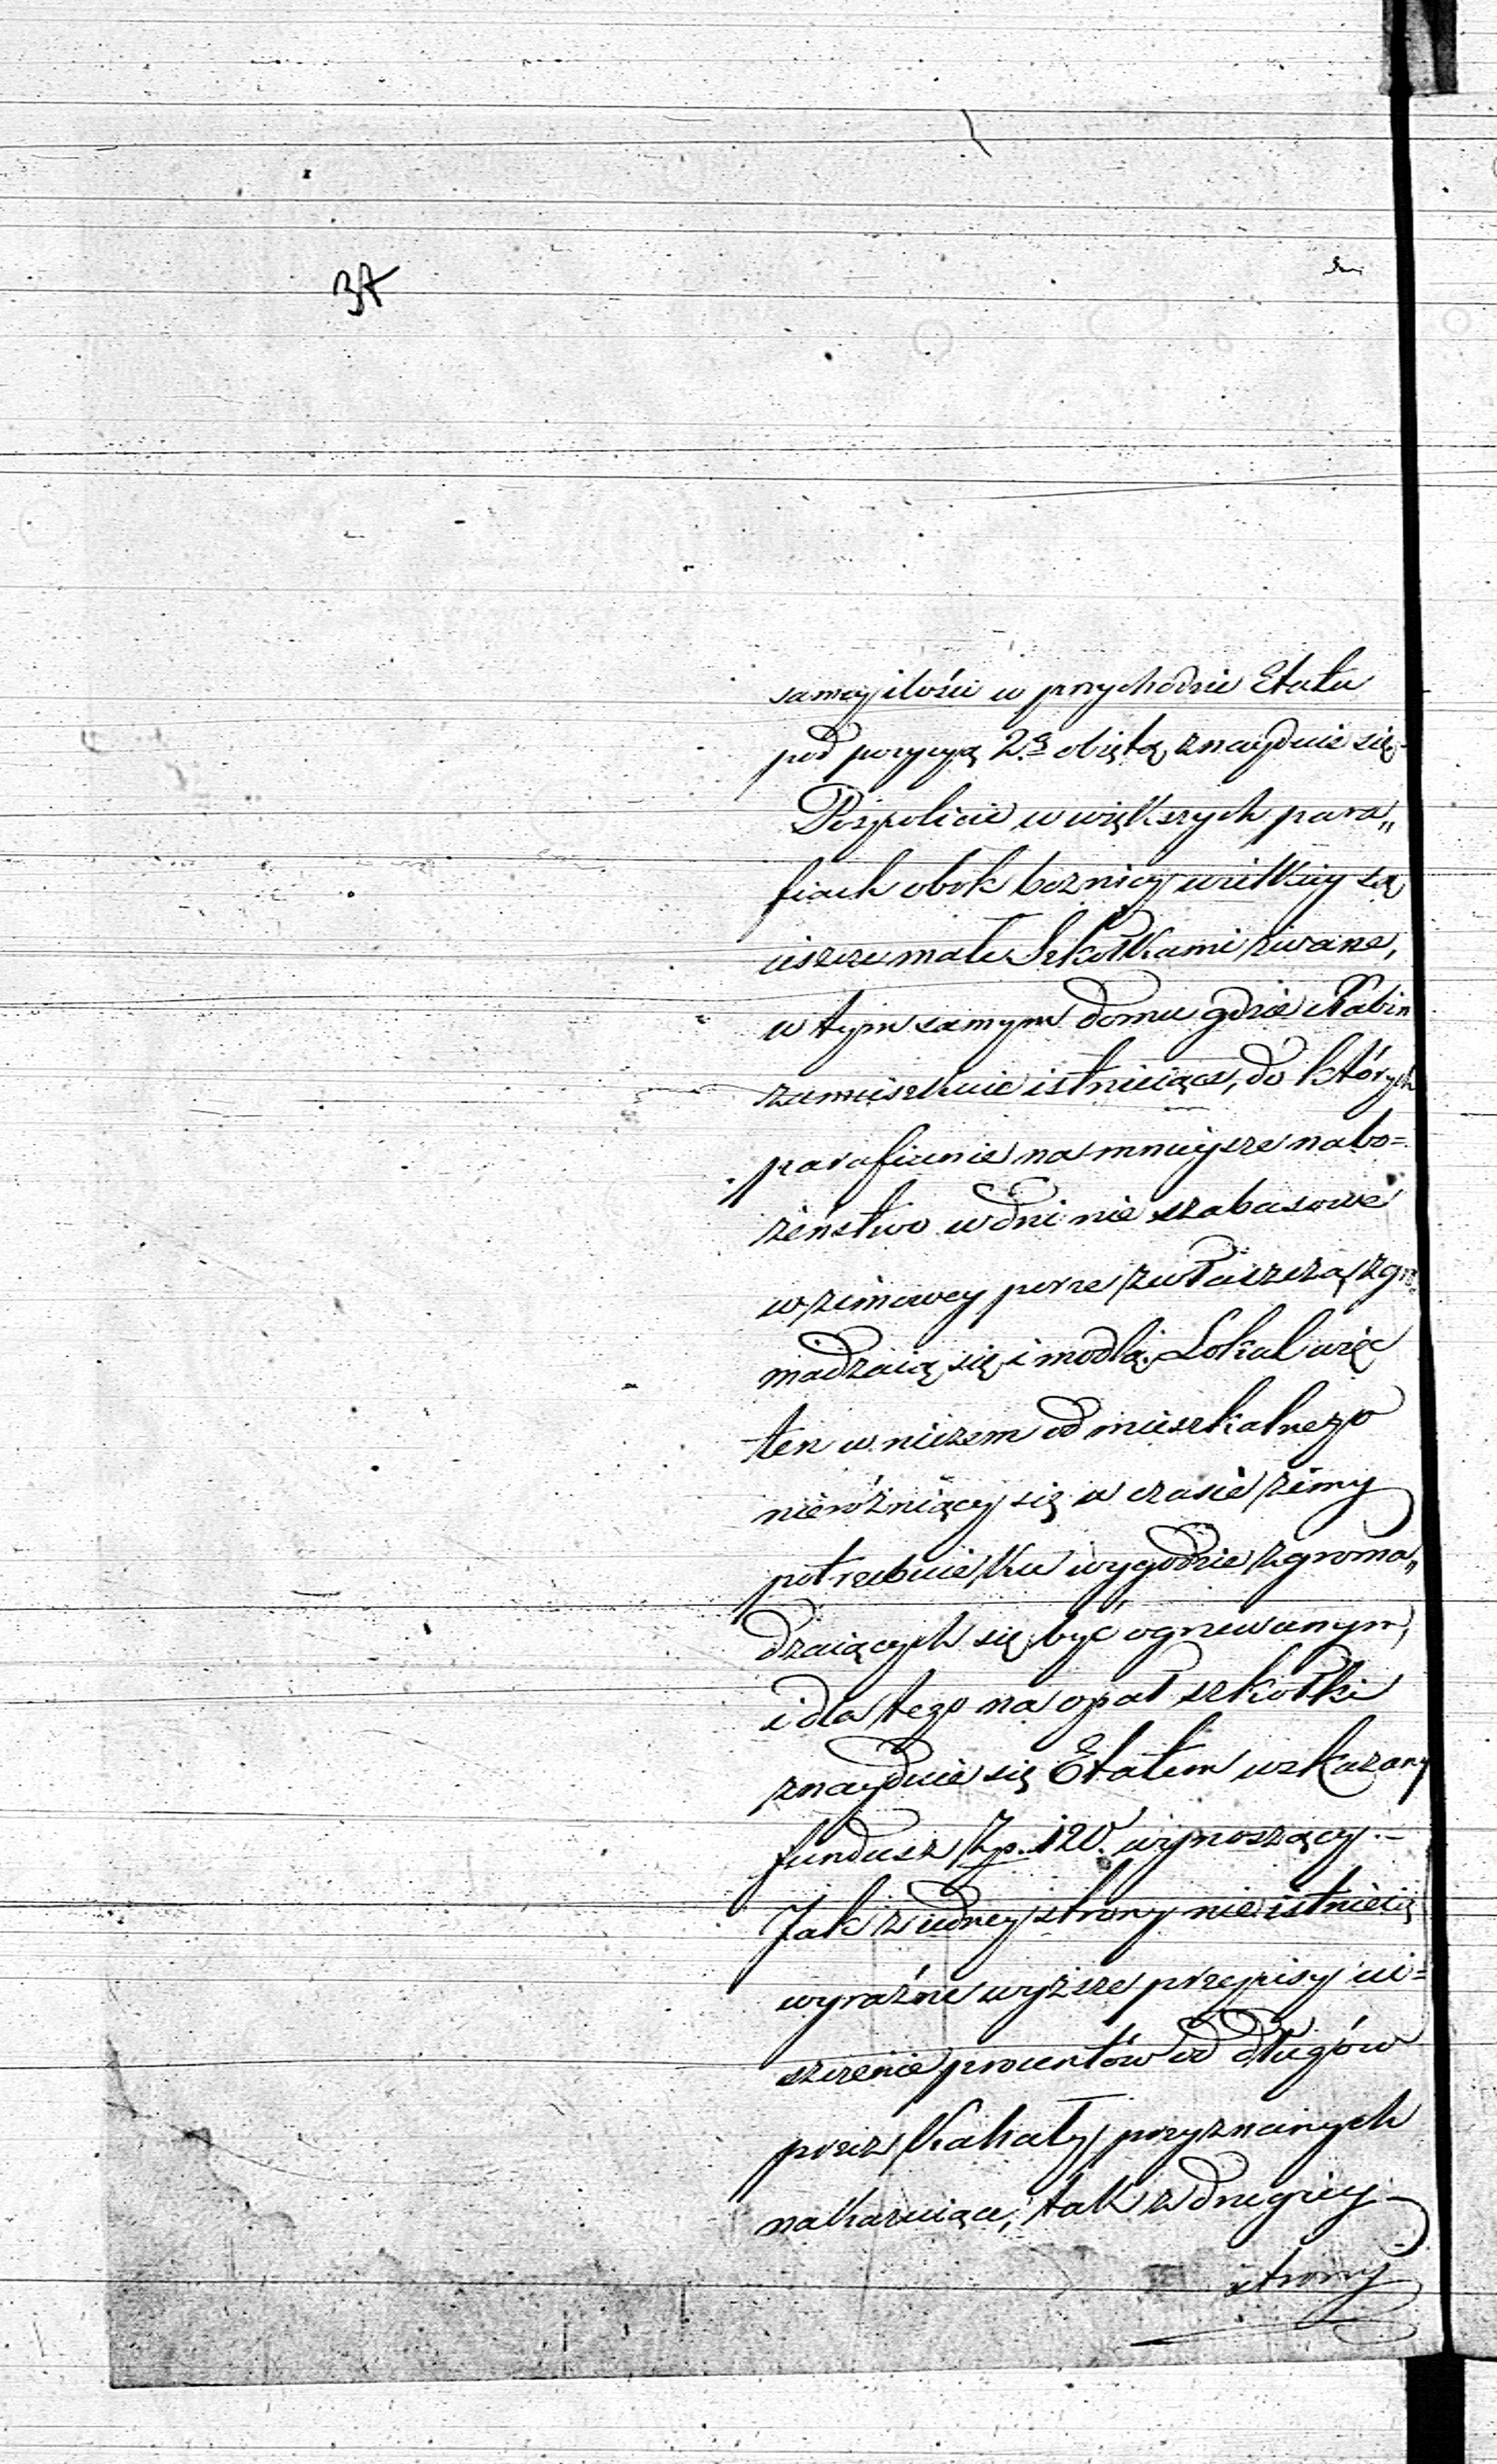 37
samey ilości w przychodzie Etatu
pod pozycyą 2.ą obiętą znayduie się.
Pospolicie w większych para„
fiach obok bożnicy wielkiey są
ieszcze małe Szkołkami zwane,
w tym samym domu gdzie Rabin
zamieszkuie istnieiące, do których
parafianie na mnieysze nabo=
żeństwo w dni nie szabasowe
w zimowey porze zwłaszcza, zgro„
madzaią się i modlą. Lokal więc
ten w niczem od mieszkalnego
nieróżniący się w czasie zimy
potrzebuie ku wygodzie zgroma„
dzaiących się być ogrzewanym,
i dla tego na opał szkołki
znayduie się Etatem wskazany
fundusz Zp. 120. wynoszący.—
Jak z iedney strony nie istnieią
wyraźne wyższe przepisy ui=
szczenie procentów od długów
przez Kahały przyznanych
nakazuiące, tak z drugiey
strony